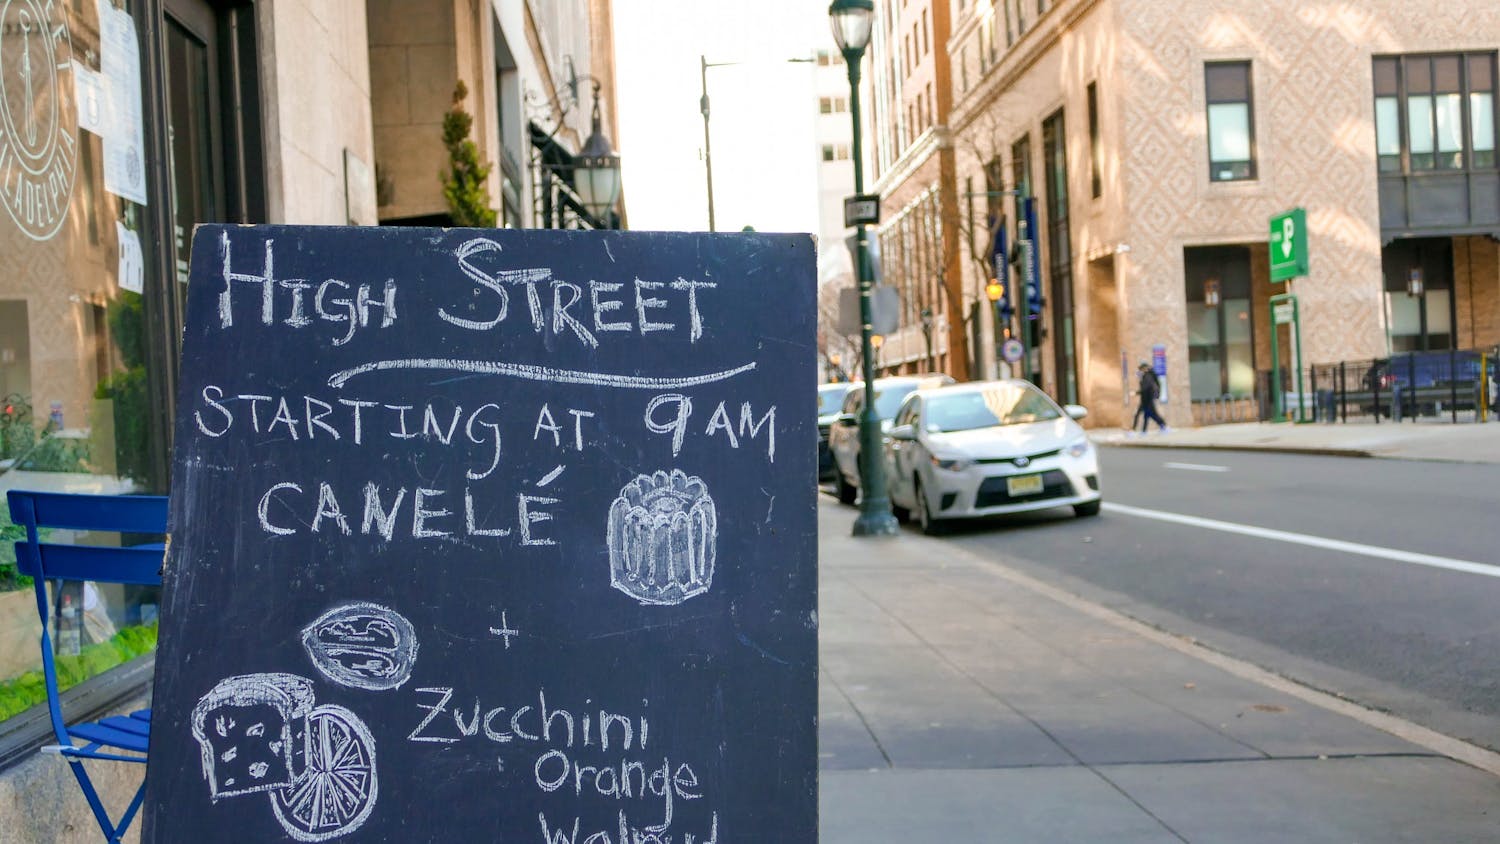 HIGH STREET
STARTING AT 9 AM
CANELÉ
+
Zucchini
Orange
Walnut
PHILADELPHIA
P